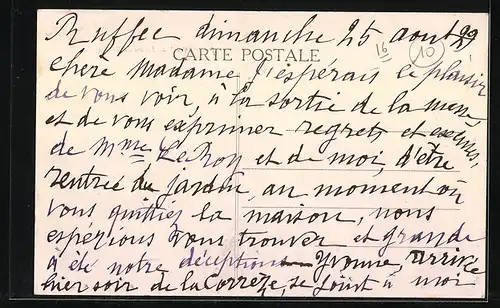 Ruffec dimanche 25 aout 29
16 10
CARTE POSTALE
chère Madame J'espérais le plaisir
de vous voir, à la sortie de la messe
et de vous exprimer regrets et excuses,
de Mme Le Roy et de moi, d'être
rentrée du jardin, au moment où
vous quittiez la maison, nous
espérions vous trouver et grande
a été notre déception Yvonne arrivée
hier soir de la Corrèze, se joint à moi